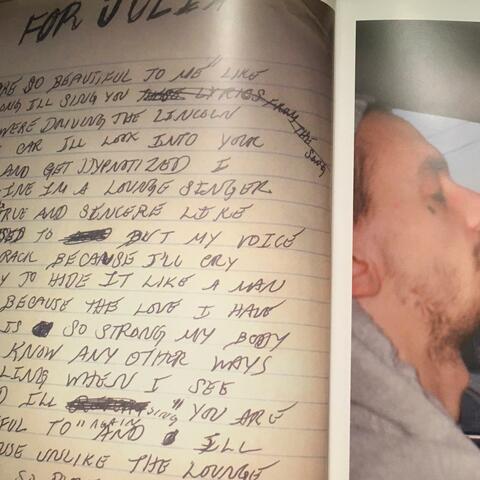 FOR JULIA
SO BEAUTIFUL TO ME" LIKE
SONG ILL SING YOU THESE LYRICS FROM THE SONG
WERE DRIVING THE LINCOLN
CAR ILL LOOK INTO YOUR
AND GET HYPNOTIZED I
IM A LOUNGE SINGER
TRUE AND SINCERE LIKE
USED TO BUT MY VOICE
CRACK BECAUSE I'LL CRY
TO HIDE IT LIKE A MAN
BECAUSE THE LOVE I HAVE
IS SO STRONG MY BODY
KNOW ANY OTHER WAYS
WHEN I SEE
ILL SING "YOU ARE
TO" AGAIN AND ILL
UNLIKE THE LOUNGE